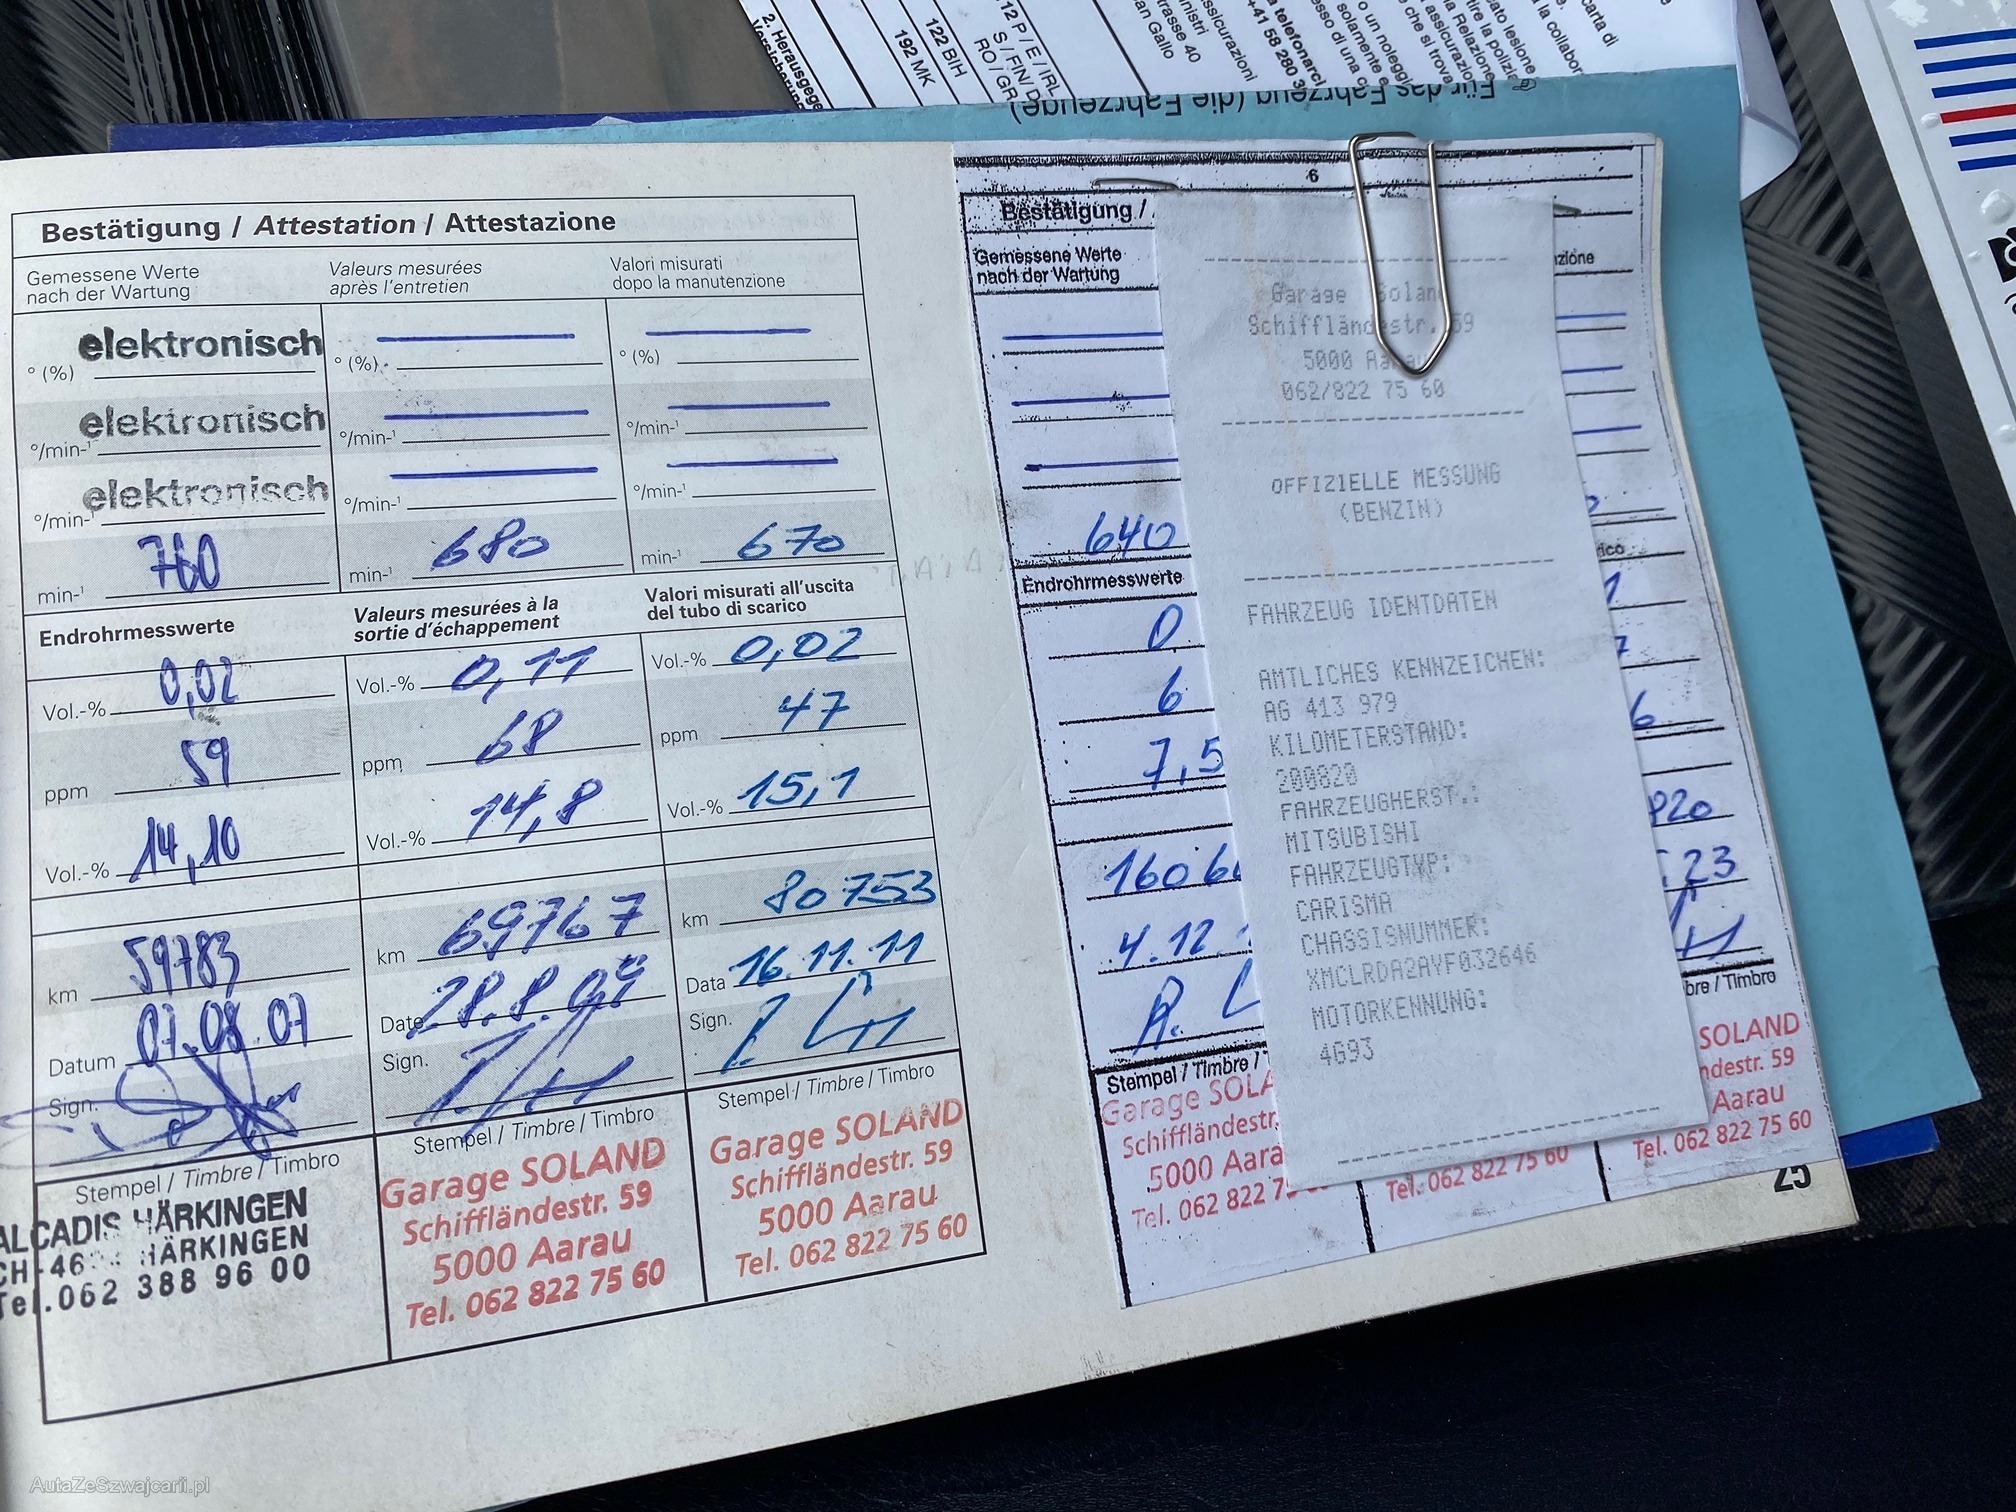 2. Herausgege
192 MK
122 BIH
12 P / E / IRL
S / FIN / D
RO / GR
an Gallo
trasse 40
inistri
ssicurazioni
a telefonarci
+41 58 280 3
Für das Fahrzeug (die Fahrzeuge)
Bestätigung / Attestation / Attestazione
Gemessene Werte
nach der Wartung
Valeurs mesurées
après l'entretien
Valori misurati
dopo la manutenzione
elektronisch
° (%)
° (%)
° (%)
elektronisch
°/min-¹
°/min-¹
°/min-¹
elektronisch
°/min-¹
°/min-¹
°/min-¹
min-¹ 760
min-¹ 680
min-¹ 670
Endrohrmesswerte
Valeurs mesurées à la
sortie d'échappement
Valori misurati all'uscita
del tubo di scarico
Vol.-% 0,02
Vol.-% 0,11
Vol.-% 0,02
ppm 59
ppm 68
ppm 47
Vol.-% 14,10
Vol.-% 14,8
Vol.-% 15,1
km 59783
km 69767
km 80753
Datum 07.08.07
Date 28.8.09
Data 16.11.11
Sign.
Sign.
Sign.
Stempel / Timbre / Timbro
Stempel / Timbre / Timbro
Stempel / Timbre / Timbro
ALCADIS HÄRKINGEN
CH-46 HÄRKINGEN
Tel.062 388 96 00
Garage SOLAND
Schiffländestr. 59
5000 Aarau
Tel. 062 822 75 60
Garage SOLAND
Schiffländestr. 59
5000 Aarau
Tel. 062 822 75 60
6
Bestätigung /
Gemessene Werte
nach der Wartung
640
Endrohrmesswerte
0
6
7,5
160 6
4.12.
Stempel / Timbre /
Garage SOLA
Schiffländestr
5000 Aara
Tel. 062 822 7
Garage Solan
Schiffländestr. 59
5000 Aarau
062/822 75 60
OFFIZIELLE MESSUNG
(BENZIN)
FAHRZEUG IDENTDATEN
AMTLICHES KENNZEICHEN:
AG 413 979
KILOMETERSTAND:
200820
FAHRZEUGHERST.:
MITSUBISHI
FAHRZEUGTYP:
CARISMA
CHASSISNUMMER:
XMCLRDA2AYF032646
MOTORKENNUNG:
4G93
Tel. 062 822 75 60
zione
rico
6
820
.23
bre / Timbro
SOLAND
ndestr. 59
Aarau
Tel. 062 822 75 60
25
AutaZeSzwajcarii.pl